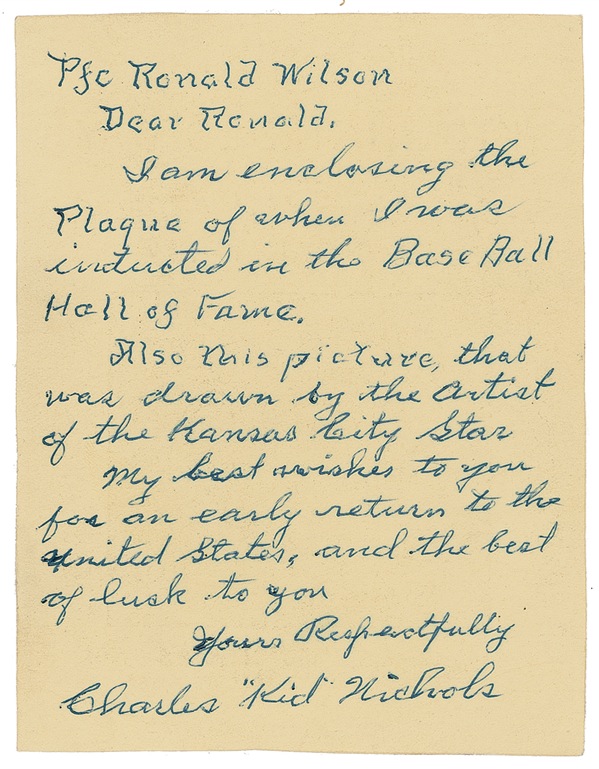 Pfc Ronald Wilson
Dear Ronald.
I am enclosing the
Plaque of when I was
inducted in the Base Ball
Hall of Fame.
Also this picture, that
was drawn by the Artist
of the Kansas City Star
My best wishes to you
for an early return to the
United States, and the best
of lusk to you
Yours Respectfully
Charles "Kid" Nichols